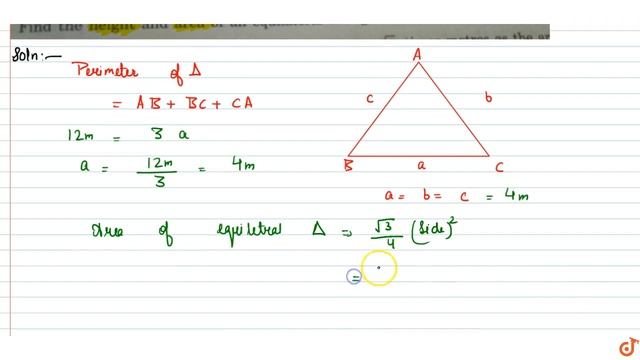 Find the height and area of an equilateral
Soln:-
Perimeter of Δ
= AB + BC + CA
12m = 3 a
a = 12m/3 = 4m
A
c b
B a C
a = b = c = 4m
Area of equiletral Δ = √3/4 (Side)²
=